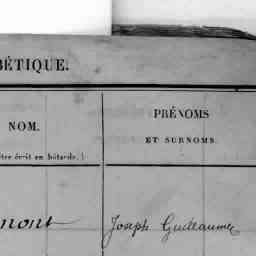 BÉTIQUE.
NOM.
PRÉNOMS
ET SURNOMS.
être écrit en bâtarde.)
mont Joseph Guilleaume